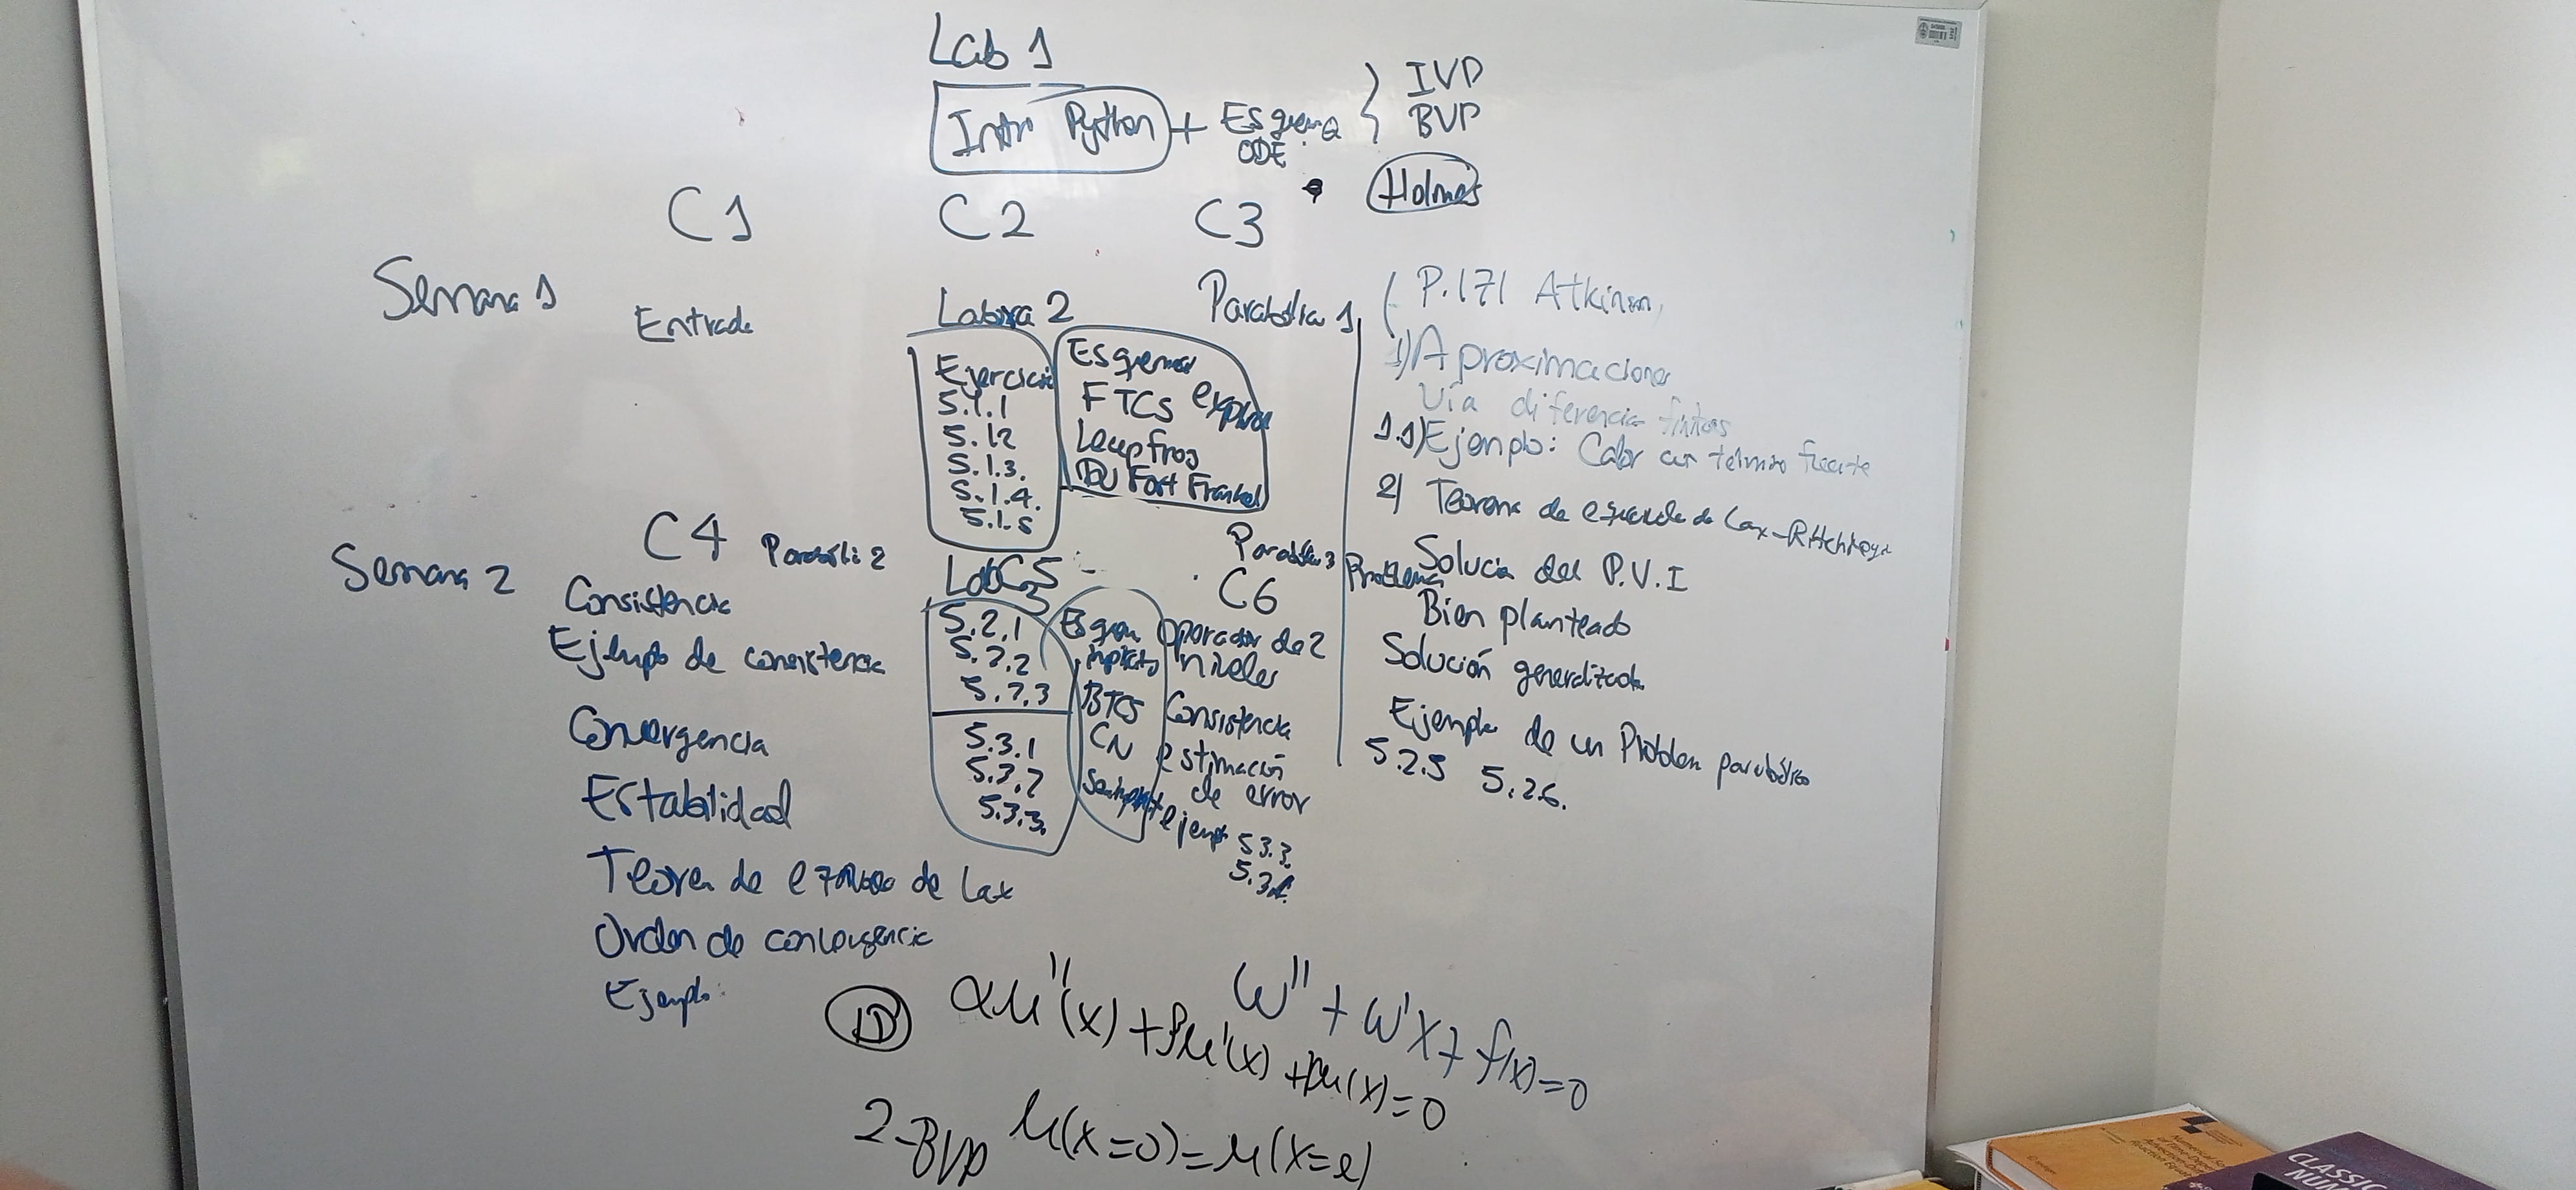 Lab 1
Intr Python + Esquema ODE
IVP
BVP
Holmes
C1 C2 C3
Semana 1
Entrada
Labora 2
Ejercicio
5.1.1
5.1.2
5.1.3.
5.1.4.
5.1.5
Esquemas
FTCS explíci
Leapfrog
Du Fort Frankel
Parabólica 1
P.171 Atkinson,
1) Aproximaciones
Vía diferencia finitas
1.1) Ejemplo: Calor con término fuente
2) Teorema de equivale de Lax-
Problema
Solución del P.V.I
Bien planteado
Solución generalizada
Ejemplo de un Problem parabólico
5.2.5 5.2.6.
Semana 2
C4 Parabóli 2
Consistencia
Ejemplo de consistencia
Convergencia
Estabilidad
Teorem de de Lax
Orden de convergencia
Ejemplo
Lab 3
C5
5.2.1
5.2.2
5.2.3
5.3.1
5.3.2
5.3.3.
Esquem
implícito
BTCS
CN
Parabólica 3
C6
Operador de 2
niveles
Consistencia
estimación
de error
ejempl 5.3.3.
ω'' + ω'x + f(x)=0
αu''(x) + βu'(x) + γu(x)=0
2-BVP u(x=0)=u(x=e)
CLASSIC